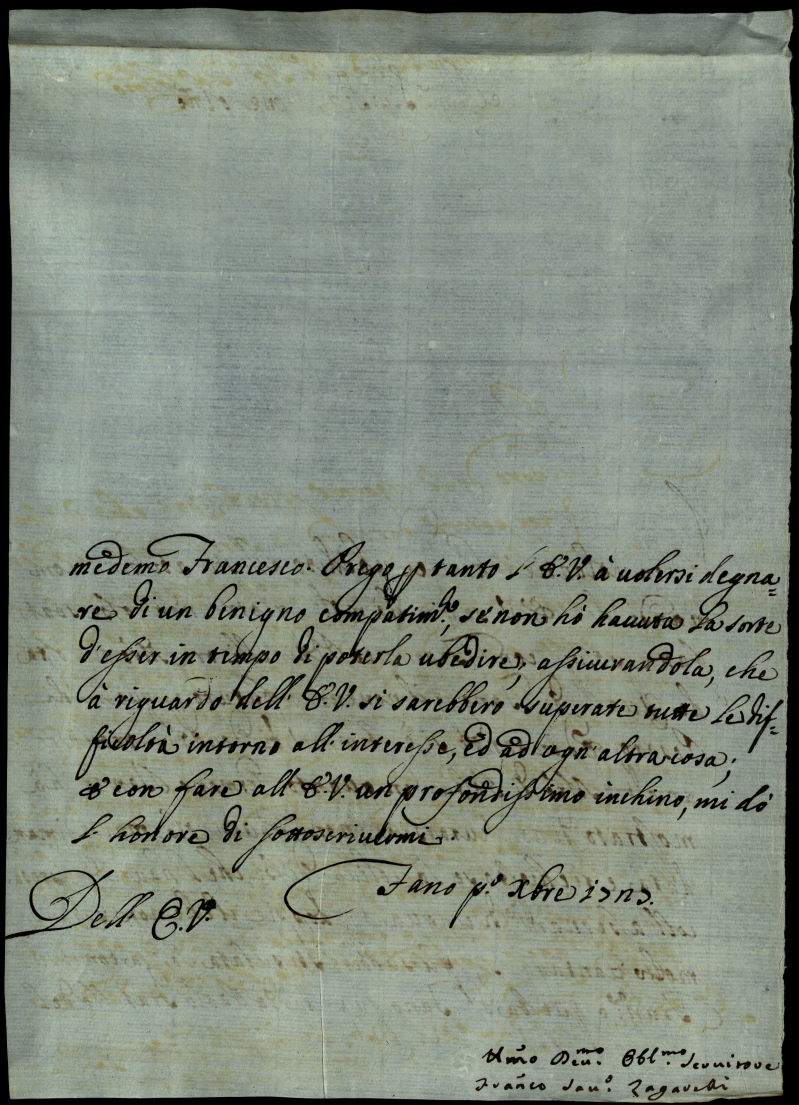 medemo Francesco. Prego p tanto l'E.V. à uolersi degna=
re di un benigno compatim.to, se non hò hauuta la sorte
d'esser in tempo di poterla ubedire; assicurandola, che
à riguardo dell'E.V. si sarebbero superate tutte le dif=
ficoltà intorno all'interesse, ed ad ogn'altra cosa;
E con fare all'E.V. un profondissimo inchino, mi dò
l'honore di sottoscriuermi.
Fano p.o Xbre
Dell'E.V.
Um̃o Deu.mo Obl.mo Seruitore
Frañco Sau.o